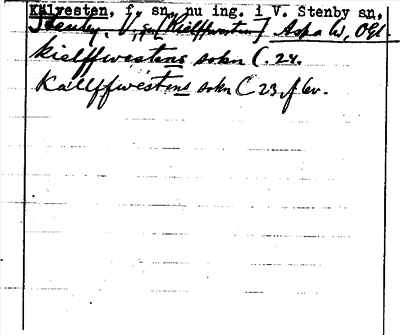 Kälvesten, f. sn, nu ing. i V. Stenby sn,
Stenby, V, sn [Kielffwesten] Aska hd, ÖGl.
kielffwestens sokn C. 24.
Kallffwestens sokn C 23 f 6v.